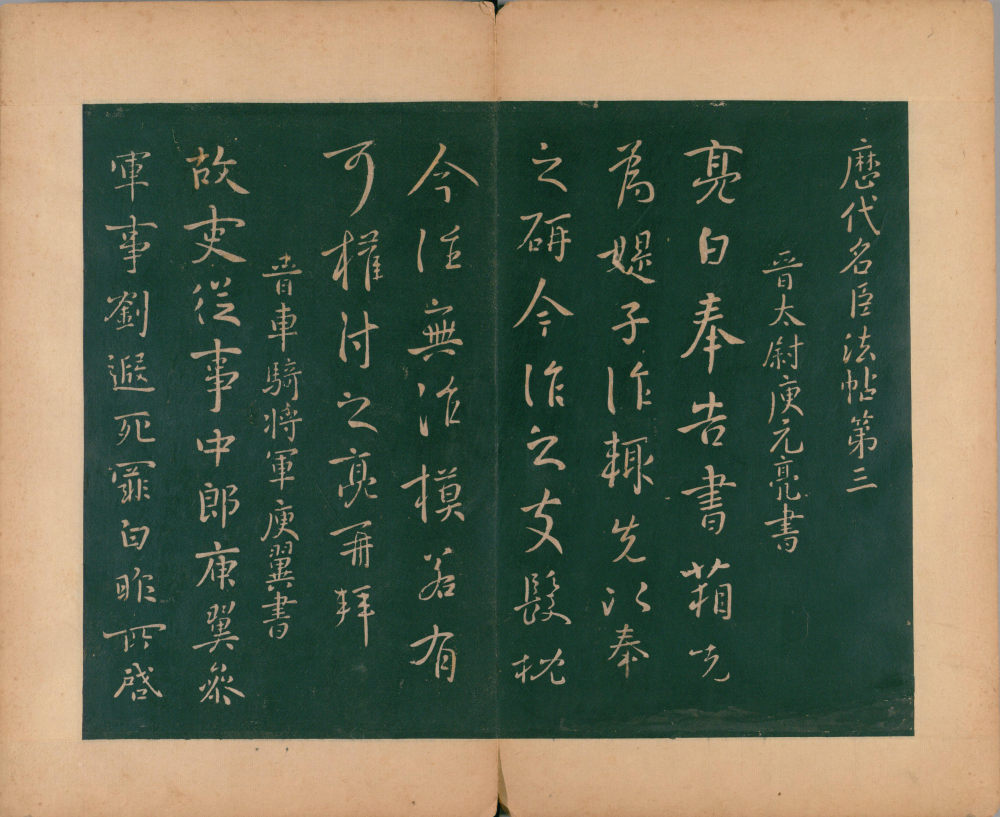 歷代名臣法帖第三
晉太尉庾元亮書
亮白奉告書箱先
為媞子作輒先以奉
之研今作之支髮枕
今往無治模若有
可權付之亮再拜
晉車騎將軍庾翼書
故吏從事中郎庾翼參
軍事劉遐死罪白昨所啓